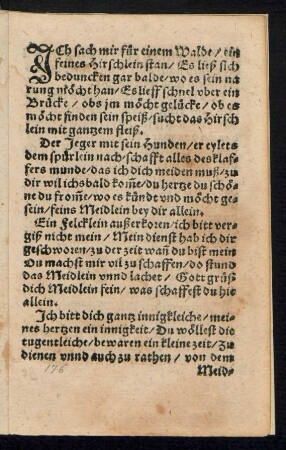 ICh sach mir für einem Walde / ein
feines Hirschlein stan / Es ließ sich
beduncken gar balde / wo es sein na
rung möcht han / Es lieff schnel vber ein
Brücke / obs jm möcht gelücke / ob es
möcht finden sein speiß / sucht das Hirsch
lein mit gantzem fleiß.
Der Jeger mit sein Hunden / er eylets
dem spürlein nach / schafft alles des klaf-
fers munde / das ich dich meiden muß / zu
dir wil ichs bald kom̃e / du hertze du schö-
ne du from̃e / wo es kündt vnd möcht ge-
sein / feins Meidlein bey dir allein.
Ein Felcklein außerkorn / ich bitt ver-
giß nicht mein / Mein dienst hab ich dir
geschworn / zu der zeit wañ du bist mein
Du machst mir vil zu schaffen / do stund
das Meidlein vnnd lachet / Gott grüß
dich Meidlein fein / was schaffest du hie
allein.
Ich bitt dich gantz innigkleiche / mei-
nes hertzen ein innigkeit / Du wöllest die
tugentleiche / bewaren ein kleine zeit / Zu
dienen vnnd auch zu rathen / von dem
Meid-
176